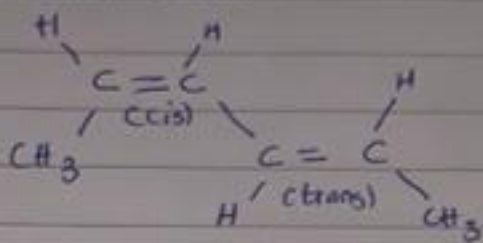 H H
C = C H
(cis)
CH3 C = C
(trans)
H CH3